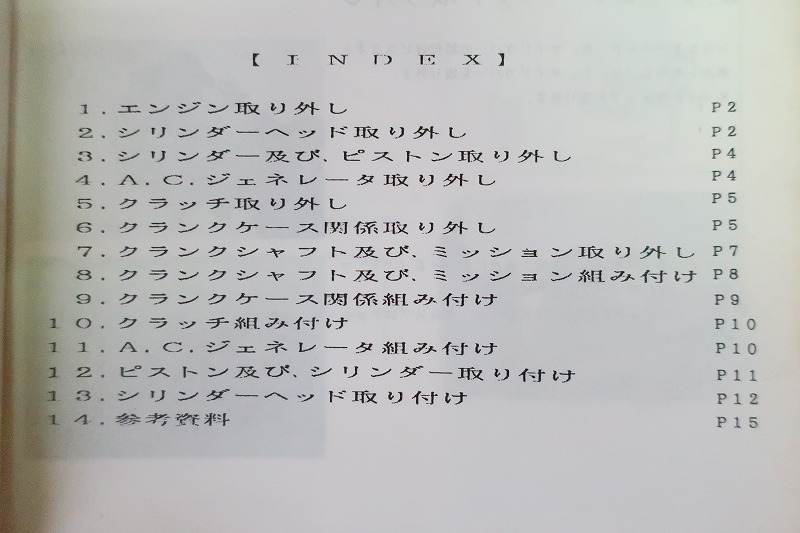 【 INDEX】
1.エンジン取り外し P2
2.シリンダーヘッド取り外し P2
3.シリンダー及び、ピストン取り外し P4
4.A.C.ジェネレータ取り外し P4
5.クラッチ取り外し P5
6.クランクケース関係取り外し P5
7.クランクシャフト及び、ミッション取り外し P7
8.クランクシャフト及び、ミッション組み付け P8
9.クランクケース関係組み付け P9
10.クラッチ組み付け P10
11.A.C.ジェネレータ組み付け P10
12.ピストン及び、シリンダー取り付け P11
13.シリンダーヘッド取り付け P12
14.参考資料 P15